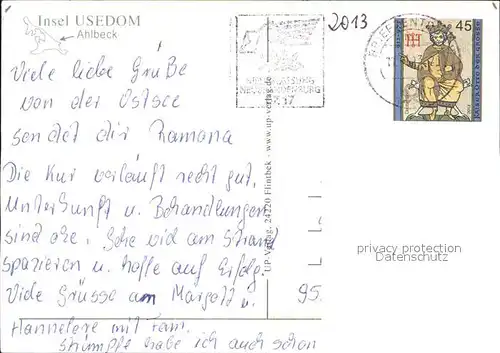 Insel USEDOM
Ahlbeck
2013
45
Viele liebe Grüße
von der Ostsee
sendet dir Ramona
Die Kur verläuft recht gut,
Unterkunft u. Behandlungen
sind oke. Gehe viel am Strand
spazieren u. hoffe auf Erfolg.
Viele Grüsse an Margott u.
Hannelore mit Fam.
Strümpfe habe ich auch schon
95
UP-Verlag, 24220 Flintbek - www.up-verlag.de
privacy protection
Datenschutz